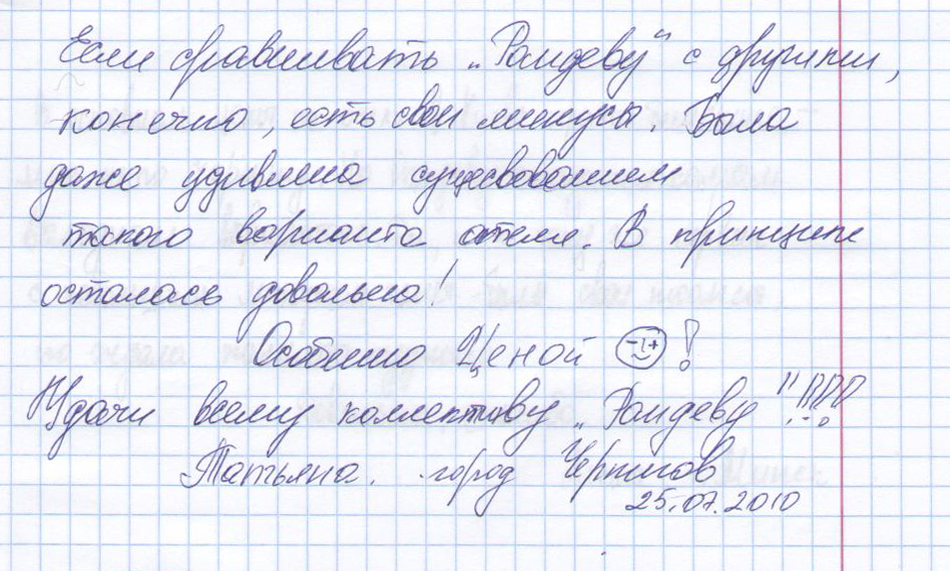 Если сравнивать „Рандеву“ с другими,
конечно, есть свои минусы. Была
даже удивлена существованием
такого варианта отеля. В принципе
осталась довольна!
Особенно Ценой !
Удачи всему коллективу „Рандеву“!!!!
Татьяна. город Чернигов
25.07.2010